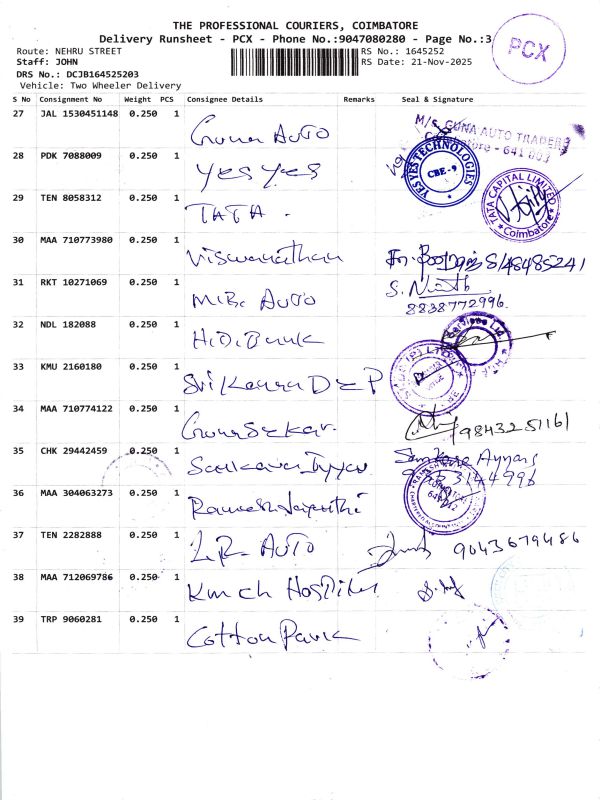 THE PROFESSIONAL COURIERS, COIMBATORE
Delivery Runsheet - PCX - Phone No.:9047080280 - Page No.:3
PCX
Route: NEHRU STREET
RS No.: 1645252
Staff: JOHN
RS Date: 21-Nov-2025
DRS No.: DCJB164525203
Vehicle: Two Wheeler Delivery
S No Consignment No Weight PCS Consignee Details Remarks Seal & Signature
27 JAL 1530451148 0.250 1
Guna AUTO
M/S. GUNA AUTO TRADERS
Coimbatore - 641 003
28 PDK 7088009 0.250 1
Yes Yes
YES YES TECHNOLOGIES
CBE-9
29 TEN 8058312 0.250 1
TATA.
TATA CAPITAL LIMITED
Coimbatore
30 MAA 710773980 0.250 1
Viswanathan
31 RKT 10271069 0.250 1
AUTO
8838772996.
32 NDL 182088 0.250 1
33 KMU 2160180 0.250 1
Sri Kanna
34 MAA 710774122 0.250 1
Guna Sekar.
9843251161
35 CHK 29442459 0.250 1
Ayyar
36 MAA 304063273 0.250 1
37 TEN 2282888 0.250 1
L.R. AUTO
9043679486
38 MAA 712069786 0.250 1
Kmch Hospital
39 TRP 9060281 0.250 1
Cotton Park